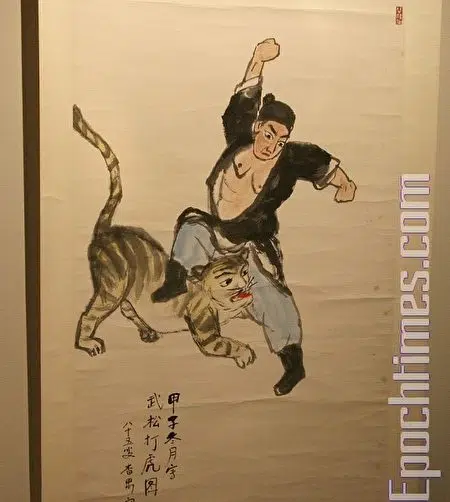 甲子冬月写
武松打虎图
八十五叟
Epochtimes.com